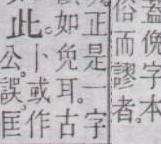 蓋俛字本
俗而謬者。
正是一字
如免耳。古
此。
卜或作
公誤。匡